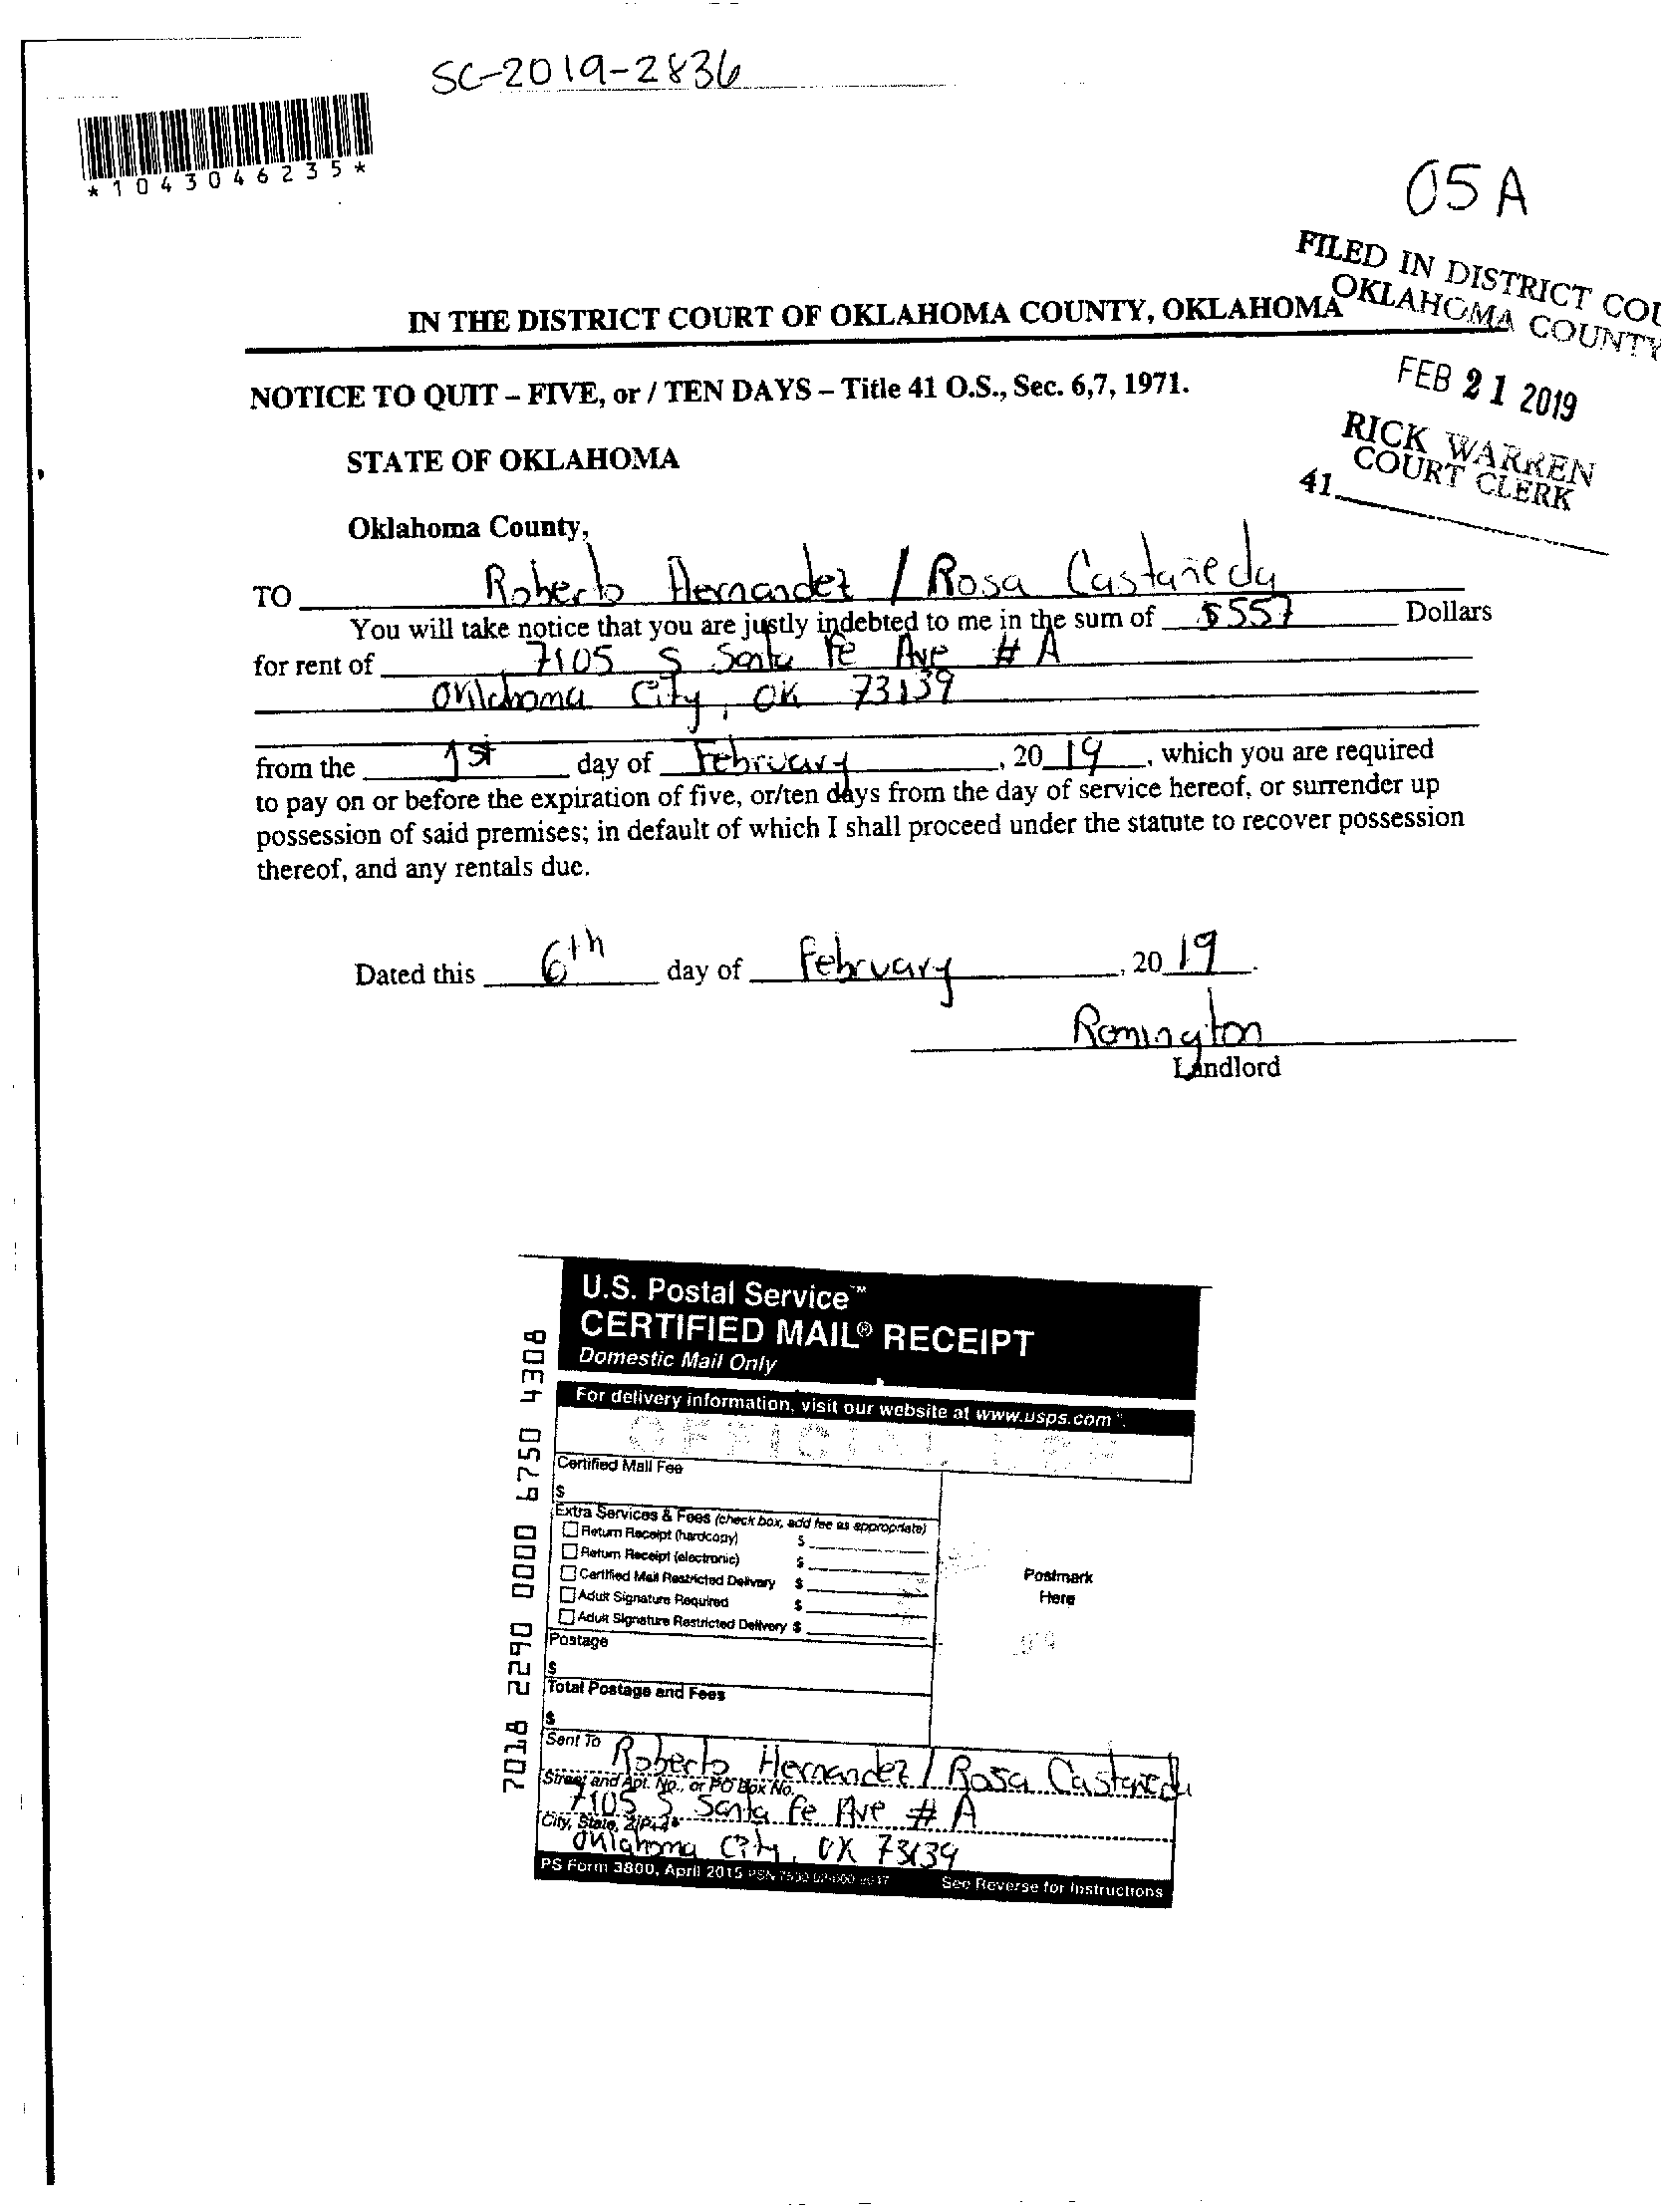 SC-2019-2836
*1043046235*
05A
FILED IN DISTRICT COU
OKLAHOMA COUNTY
IN THE DISTRICT COURT OF OKLAHOMA COUNTY, OKLAHOMA
FEB 21 2019
NOTICE TO QUIT – FIVE, or / TEN DAYS – Title 41 O.S., Sec. 6,7, 1971.
RICK WARREN
COURT CLERK
STATE OF OKLAHOMA
41
Oklahoma County,
TO Roberto Hernandez / Rosa Castañeda
You will take notice that you are justly indebted to me in the sum of $557 Dollars
for rent of 7105 S Santa Fe Ave # A
Oklahoma City, OK 73139
from the 1st day of February, 2019, which you are required
to pay on or before the expiration of five, or/ten days from the day of service hereof, or surrender up
possession of said premises; in default of which I shall proceed under the statute to recover possession
thereof, and any rentals due.
Dated this 6th day of February, 2019.
Remington
Landlord
U.S. Postal Service™
CERTIFIED MAIL® RECEIPT
Domestic Mail Only
For delivery information, visit our website at www.usps.com
OFFICIAL USE
Certified Mail Fee
$
Extra Services & Fees (check box, add fee as appropriate)
Return Receipt (hardcopy) $
Return Receipt (electronic) $
Certified Mail Restricted Delivery $
Adult Signature Required $
Adult Signature Restricted Delivery $
Postmark
Here
Postage
$
Total Postage and Fees
$
Sent To Roberto Hernandez / Rosa Castaneda
Street and Apt. No., or PO Box No.
7105 S Santa Fe Ave # A
City, State, ZIP+4®
Oklahoma City, OK 73139
PS Form 3800, April 2015 See Reverse for Instructions
7018 2290 0000 6750 4308